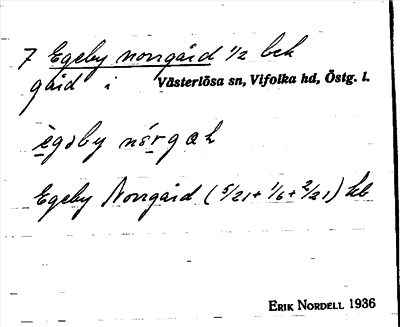 7 Egeby norrgård 1/2 bek
gård i Västerlösa sn, Vifolka hd, Östg. l.
ègəby nórgæh
Egeby Norrgård (5/21 + 1/6 + 2/21) Jb
ERIK NORDELL 1936